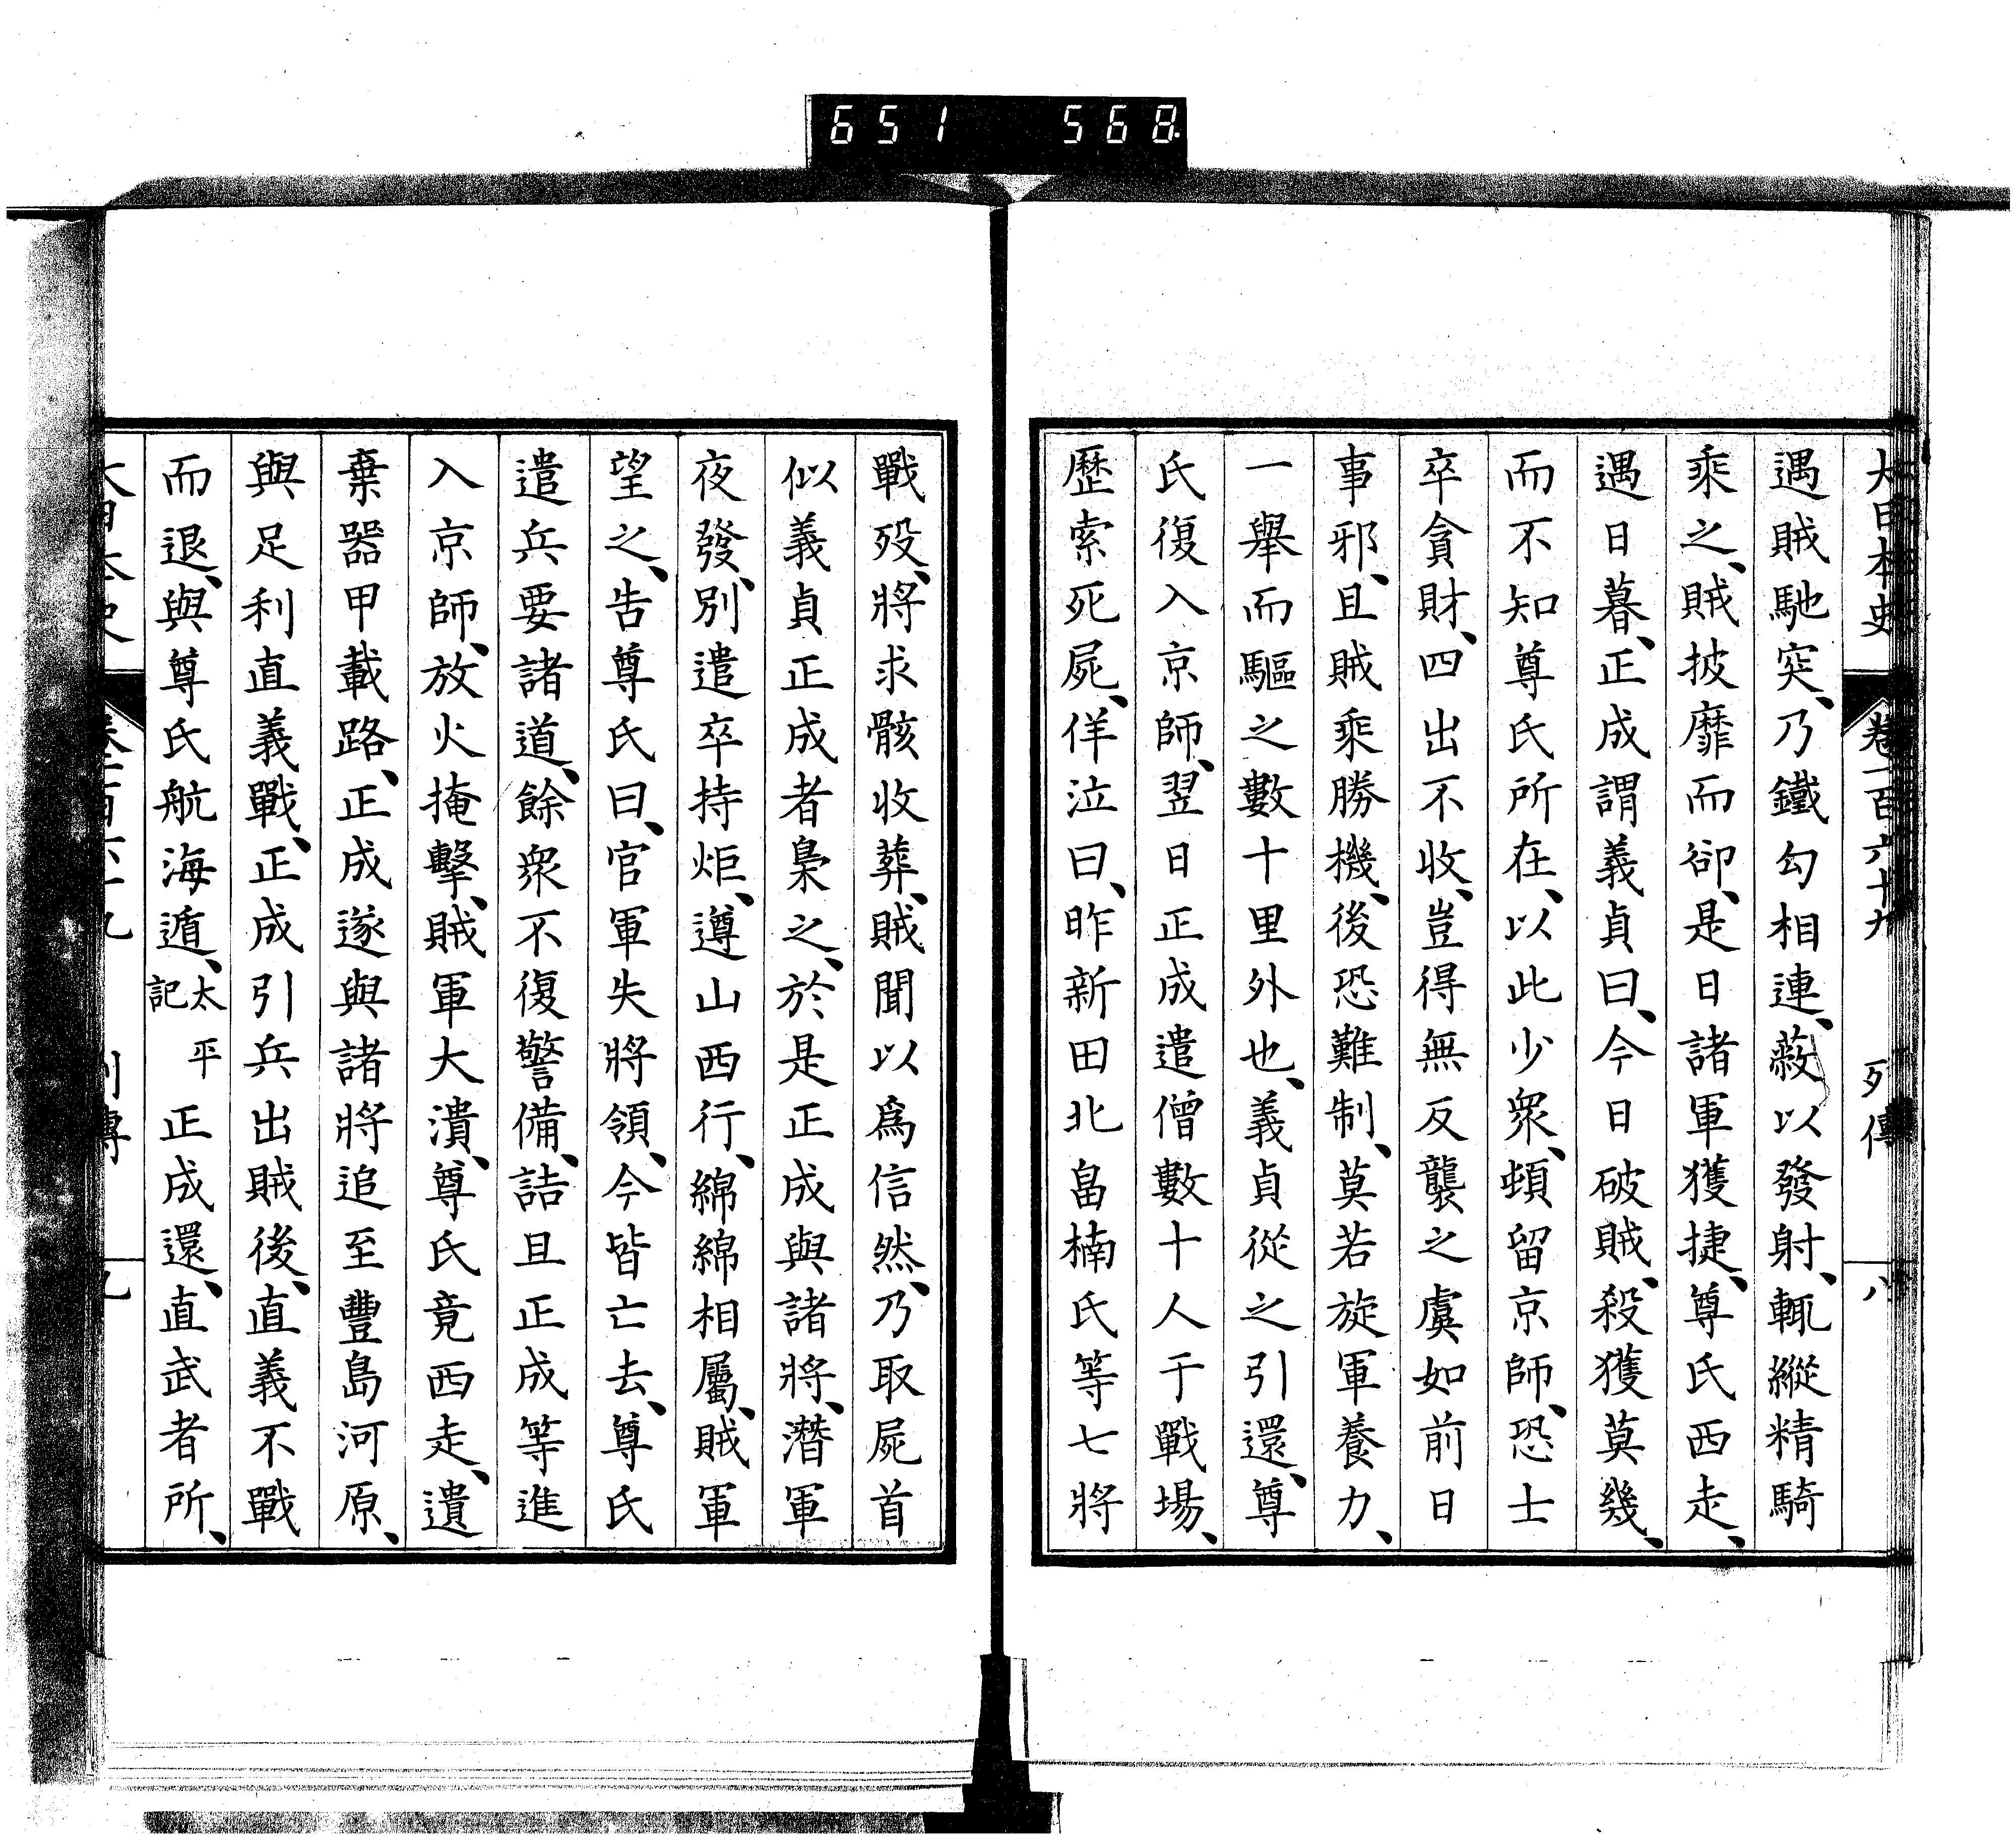 651 568
大日本史 卷一百六十九 列傳 八
遇賊馳突、乃鐵勾相連、蔽以發射、輒縱精騎
乘之、賊披靡而卻、是日諸軍獲捷、尊氏西走、
遇日暮、正成謂義貞曰、今日破賊、殺獲莫幾、
而不知尊氏所在、以此少衆、頓留京師、恐士
卒貪財、四出不收、豈得無反襲之虞如前日
事邪、且賊乘勝機、後恐難制、莫若旋軍養力、
一舉而驅之數十里外也、義貞從之引還、尊
氏復入京師、翌日正成遣僧數十人于戰場、
歷索死屍、佯泣曰、昨新田北畠楠氏等七將
戰歿、將求骸收葬、賊聞以爲信然、乃取屍首
似義貞正成者梟之、於是正成與諸將、潛軍
夜發、別遣卒持炬、遵山西行、綿綿相屬、賊軍
望之、告尊氏曰、官軍失將領、今皆亡去、尊氏
遣兵要諸道、餘衆不復警備、詰旦正成等進
入京師、放火掩擊、賊軍大潰、尊氏竟西走、遺
棄器甲載路、正成遂與諸將追至豐島河原、
與足利直義戰、正成引兵出賊後、直義不戰
而退、與尊氏航海遁、太平記 正成還、直武者所、
大日本史 卷一百六十九 列傳 九